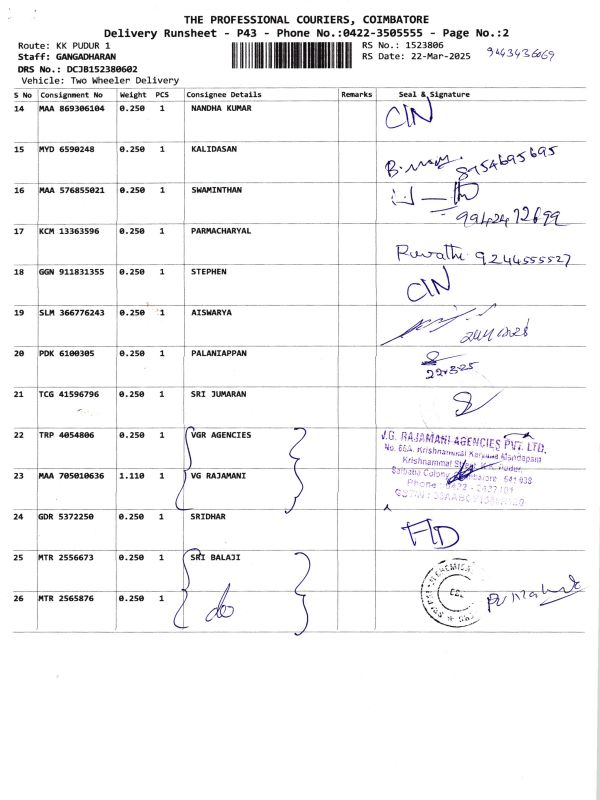 THE PROFESSIONAL COURIERS, COIMBATORE
Delivery Runsheet - P43 - Phone No.:0422-3505555 - Page No.:2
Route: KK PUDUR 1 RS No.: 1523806
Staff: GANGADHARAN RS Date: 22-Mar-2025 9443436069
DRS No.: DCJB152380602
Vehicle: Two Wheeler Delivery
S No Consignment No Weight PCS Consignee Details Remarks Seal & Signature
14 MAA 869306104 0.250 1 NANDHA KUMAR CIN
15 MYD 6590248 0.250 1 KALIDASAN
8754695695
16 MAA 576855021 0.250 1 SWAMINTHAN
9942472699
17 KCM 13363596 0.250 1 PARMACHARYAL
9244555527
18 GGN 911831355 0.250 1 STEPHEN CIN
19 SLM 366776243 0.250 1 AISWARYA
20 PDK 6100305 0.250 1 PALANIAPPAN
22-3-25
21 TCG 41596796 0.250 1 SRI JUMARAN
22 TRP 4054806 0.250 1 VGR AGENCIES
V.G. RAJAMANI AGENCIES PVT. LTD.
No. 66A, Krishnammal Kalyana Mandapam
Krishnammal Street, K.K. Pudur,
23 MAA 705010636 1.110 1 VG RAJAMANI
Saibaba Colony, Coimbatore 641 038
Phone : 0422 -
24 GDR 5372250 0.250 1 SRIDHAR
25 MTR 2556673 0.250 1 SRI BALAJI
26 MTR 2565876 0.250 1 do